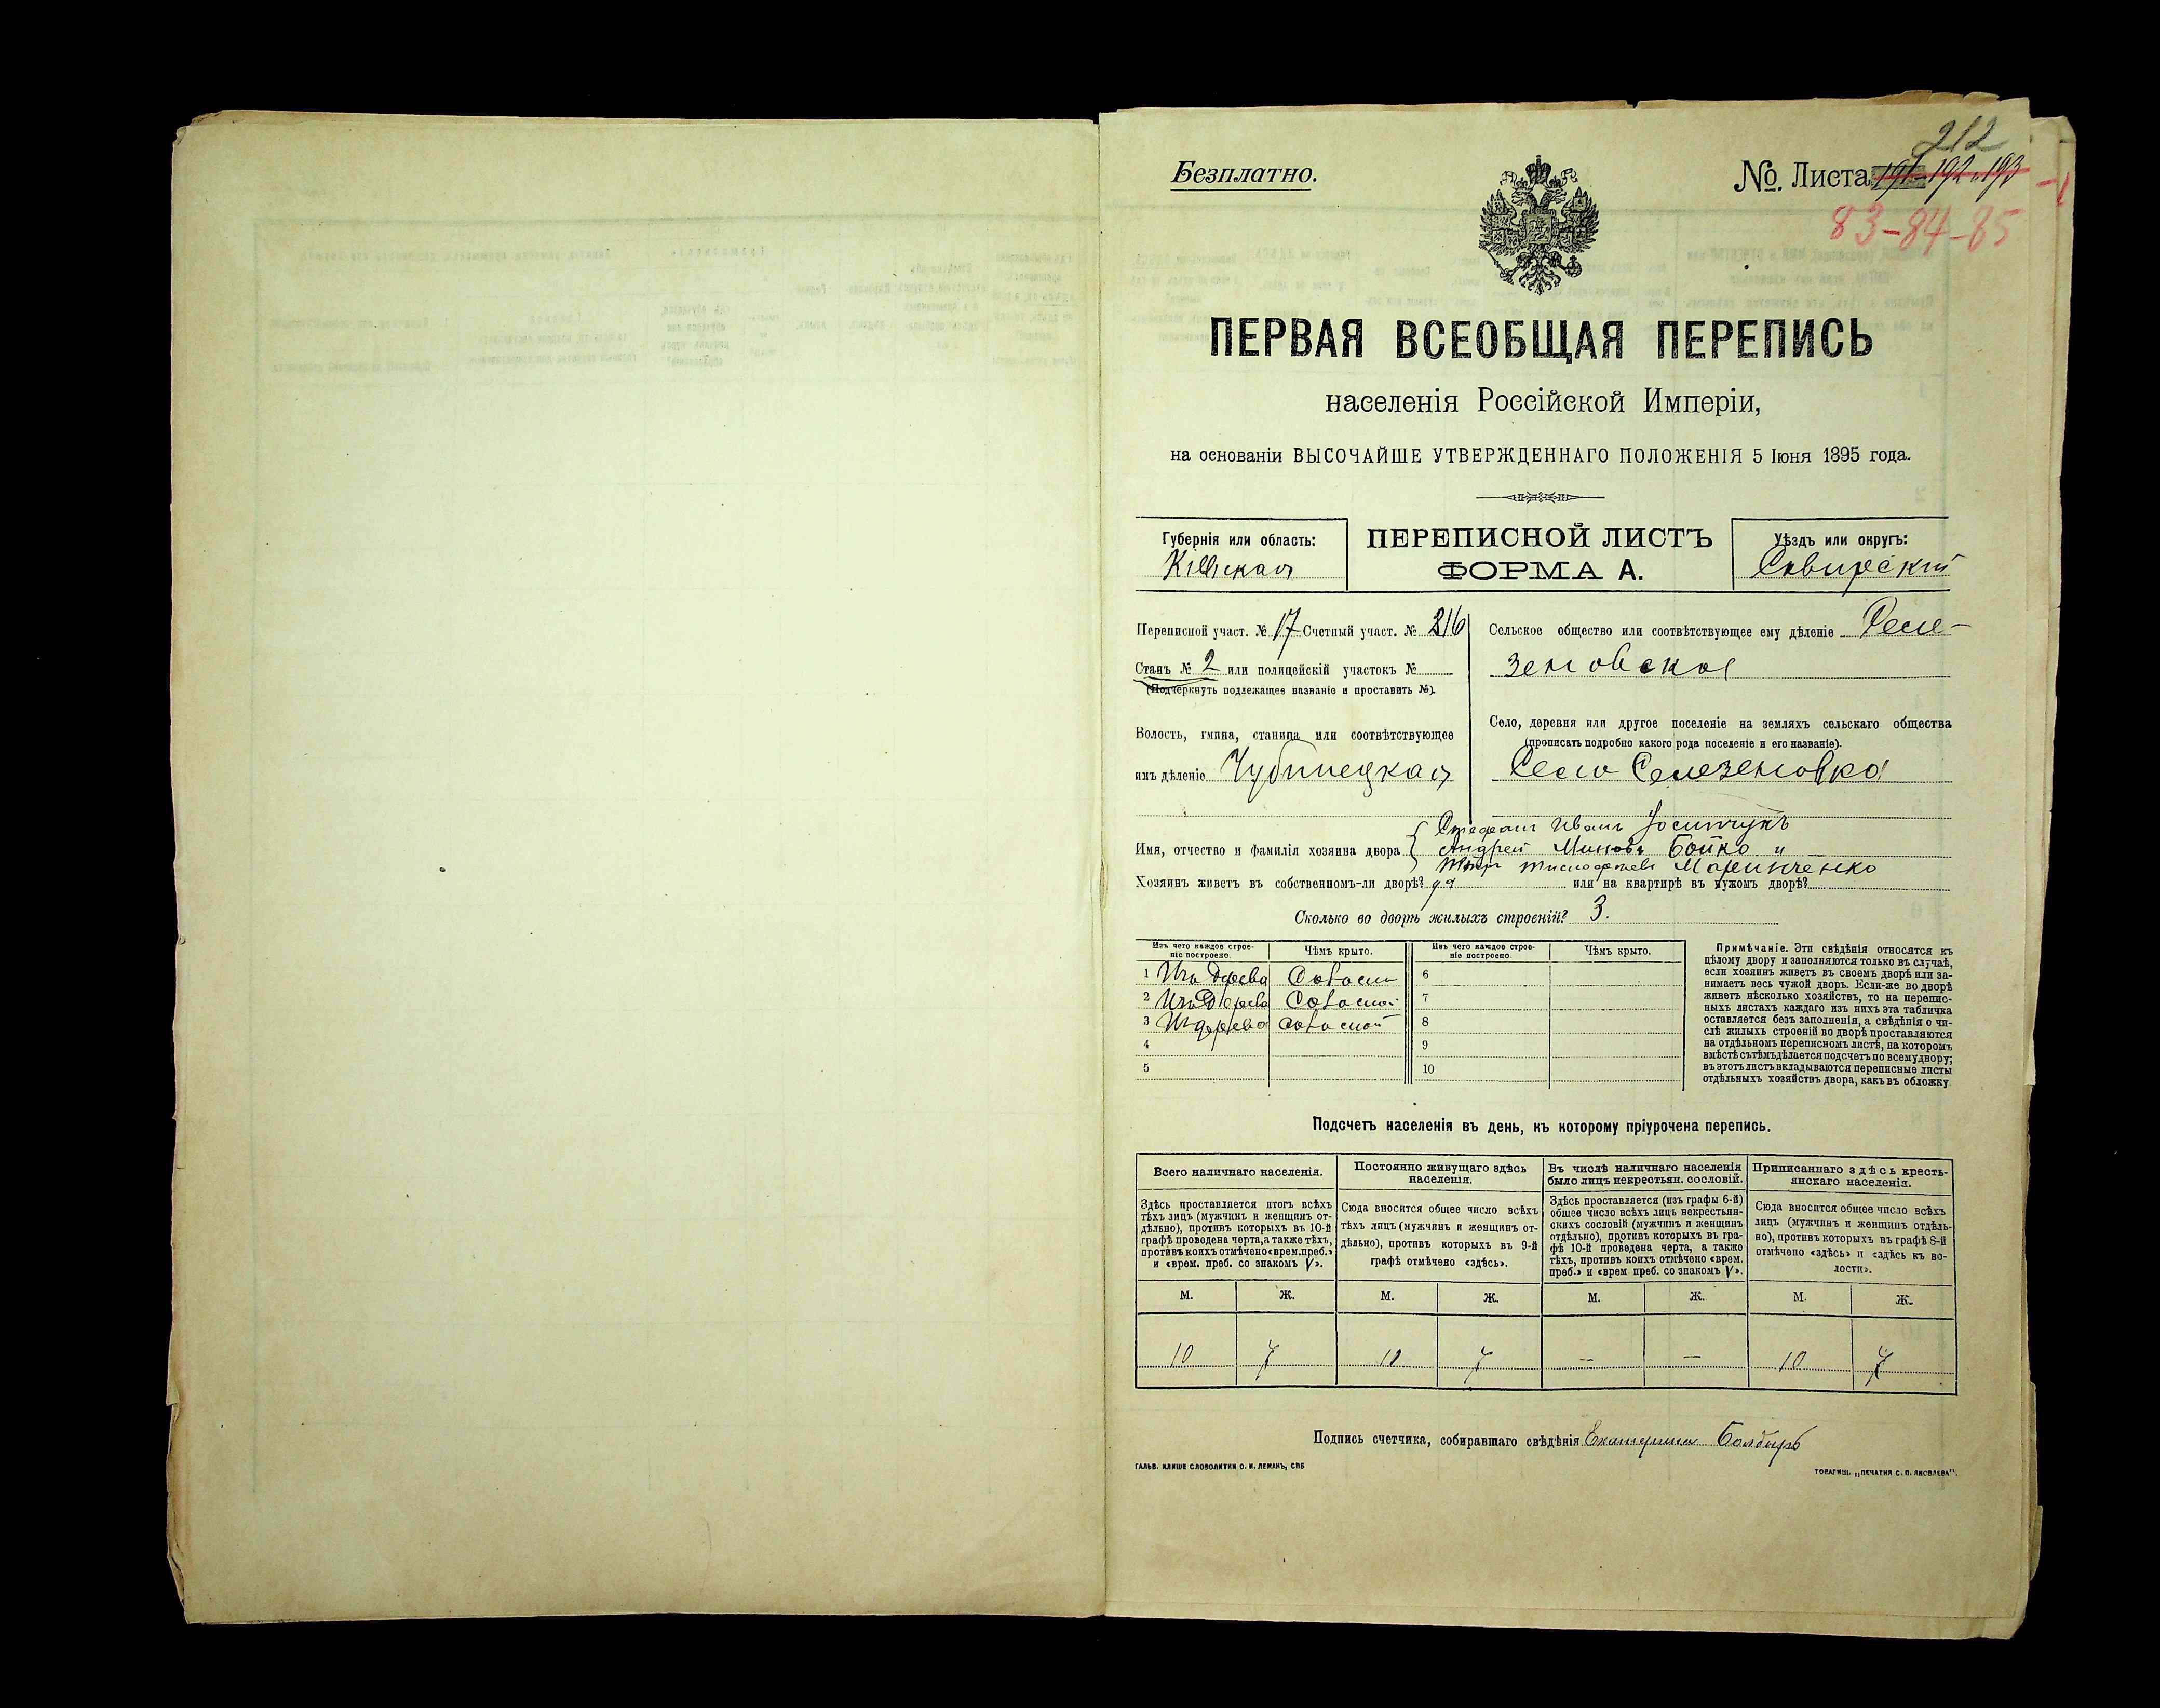 212
Безплатно.
№ Листа 191-192-193
83-84-85
ПЕРВАЯ ВСЕОБЩАЯ ПЕРЕПИСЬ
населенія Россійской Имперіи,
на основаніи ВЫСОЧАЙШЕ УТВЕРЖДЕННАГО ПОЛОЖЕНІЯ 5 Іюня 1895 года.
Губернія или область:
Кіевская
ПЕРЕПИСНОЙ ЛИСТЪ
ФОРМА А.
Уѣздъ или округъ:
Сквирскій
Переписной участ. № 17 Счетный участ. № 216
Станъ № 2 или полицейскій участокъ №
(Подчеркнуть подлежащее названіе и проставить №).
Волость, гмина, станица или соотвѣтствующее
имъ дѣленіе Чубинецкая
Сельское общество или соотвѣтствующее ему дѣленіе Селе-
зеновское
Село, деревня или другое поселеніе на земляхъ сельскаго общества
(прописать подробно какого рода поселеніе и его названіе).
Село Селезеновка
Стефанъ Иванъ
Имя, отчество и фамилія хозяина двора Андрей Бойко и
Маринченко
Хозяинъ живетъ въ собственномъ-ли дворѣ? да или на квартирѣ въ чужомъ дворѣ?
Сколько во дворѣ жилыхъ строеній? 3.
Изъ чего каждое строе-
ніе построено.
Чѣмъ крыто.
Изъ чего каждое строе-
ніе построено.
Чѣмъ крыто.
1 Изъ дерева Соломой 6
2 Изъ дерева Соломой 7
3 Из дерева соломой 8
4 9
5 10
Примѣчаніе. Эти свѣдѣнія относятся къ
цѣлому двору и заполняются только въ случаѣ,
если хозяинъ живетъ въ своемъ дворѣ или за-
нимаетъ весь чужой дворъ. Если-же во дворѣ
живетъ нѣсколько хозяйствъ, то на перепис-
ныхъ листахъ каждаго изъ нихъ эта табличка
оставляется безъ заполненія, а свѣдѣнія о чи-
слѣ жилыхъ строеній во дворѣ проставляются
на отдѣльномъ переписномъ листѣ, на которомъ
вмѣстѣ съ тѣмъ дѣлается подсчетъ по всему двору;
въ этотъ листъ вкладываются переписные листы
отдѣльныхъ хозяйствъ двора, какъ въ обложку
Подсчетъ населенія въ день, къ которому пріурочена перепись.
Всего наличнаго населенія.
Здѣсь проставляется итогъ всѣхъ
тѣхъ лицъ (мужчинъ и женщинъ от-
дѣльно), противъ которыхъ въ 10-й
графѣ проведена черта, а также тѣхъ,
противъ коихъ отмѣчено «врем. преб.»
и «врем. преб. со знакомъ V».
Постоянно живущаго здѣсь
населенія.
Сюда вносится общее число всѣхъ
тѣхъ лицъ (мужчинъ и женщинъ от-
дѣльно), противъ которыхъ въ 9-й
графѣ отмѣчено «здѣсь».
Въ числѣ наличнаго населенія
было лицъ некрестьян. сословій.
Здѣсь проставляется (изъ графы 6-й)
общее число всѣхъ лицъ некрестьян-
скихъ сословій (мужчинъ и женщинъ
отдѣльно), противъ которыхъ въ гра-
фѣ 10-й проведена черта, а также
тѣхъ, противъ коихъ отмѣчено «врем.
преб.» и «врем преб. со знакомъ V».
Приписаннаго здѣсь кресть-
янскаго населенія.
Сюда вносится общее число всѣхъ
лицъ (мужчинъ и женщинъ отдѣль-
но), противъ которыхъ въ графѣ 8-й
отмѣчено «здѣсь» и «здѣсь къ во-
лости».
М. Ж. М. Ж. М. Ж. М. Ж.
10 7 10 7 — — 10 7
Подпись счетчика, собиравшаго свѣдѣнія Екатерина Болбыръ
ГАЛЬВ. КЛИШЕ СЛОВОЛИТНИ О. И. ЛЕМАНЪ, СПБ
ТОВАРИЩ. „ПЕЧАТНЯ С. П. ЯКОВЛЕВА".